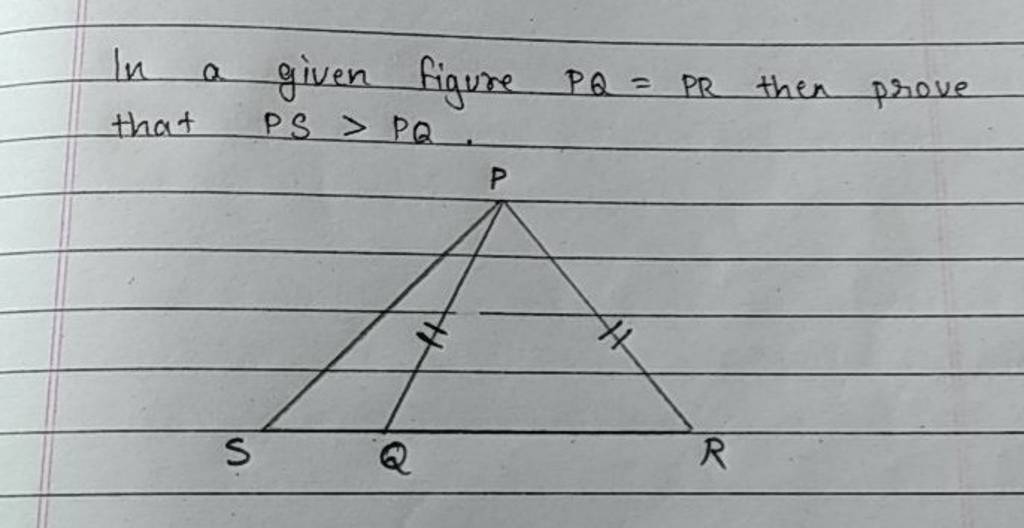 In a given figure PQ = PR then prove
that PS > PQ .
P
S Q R